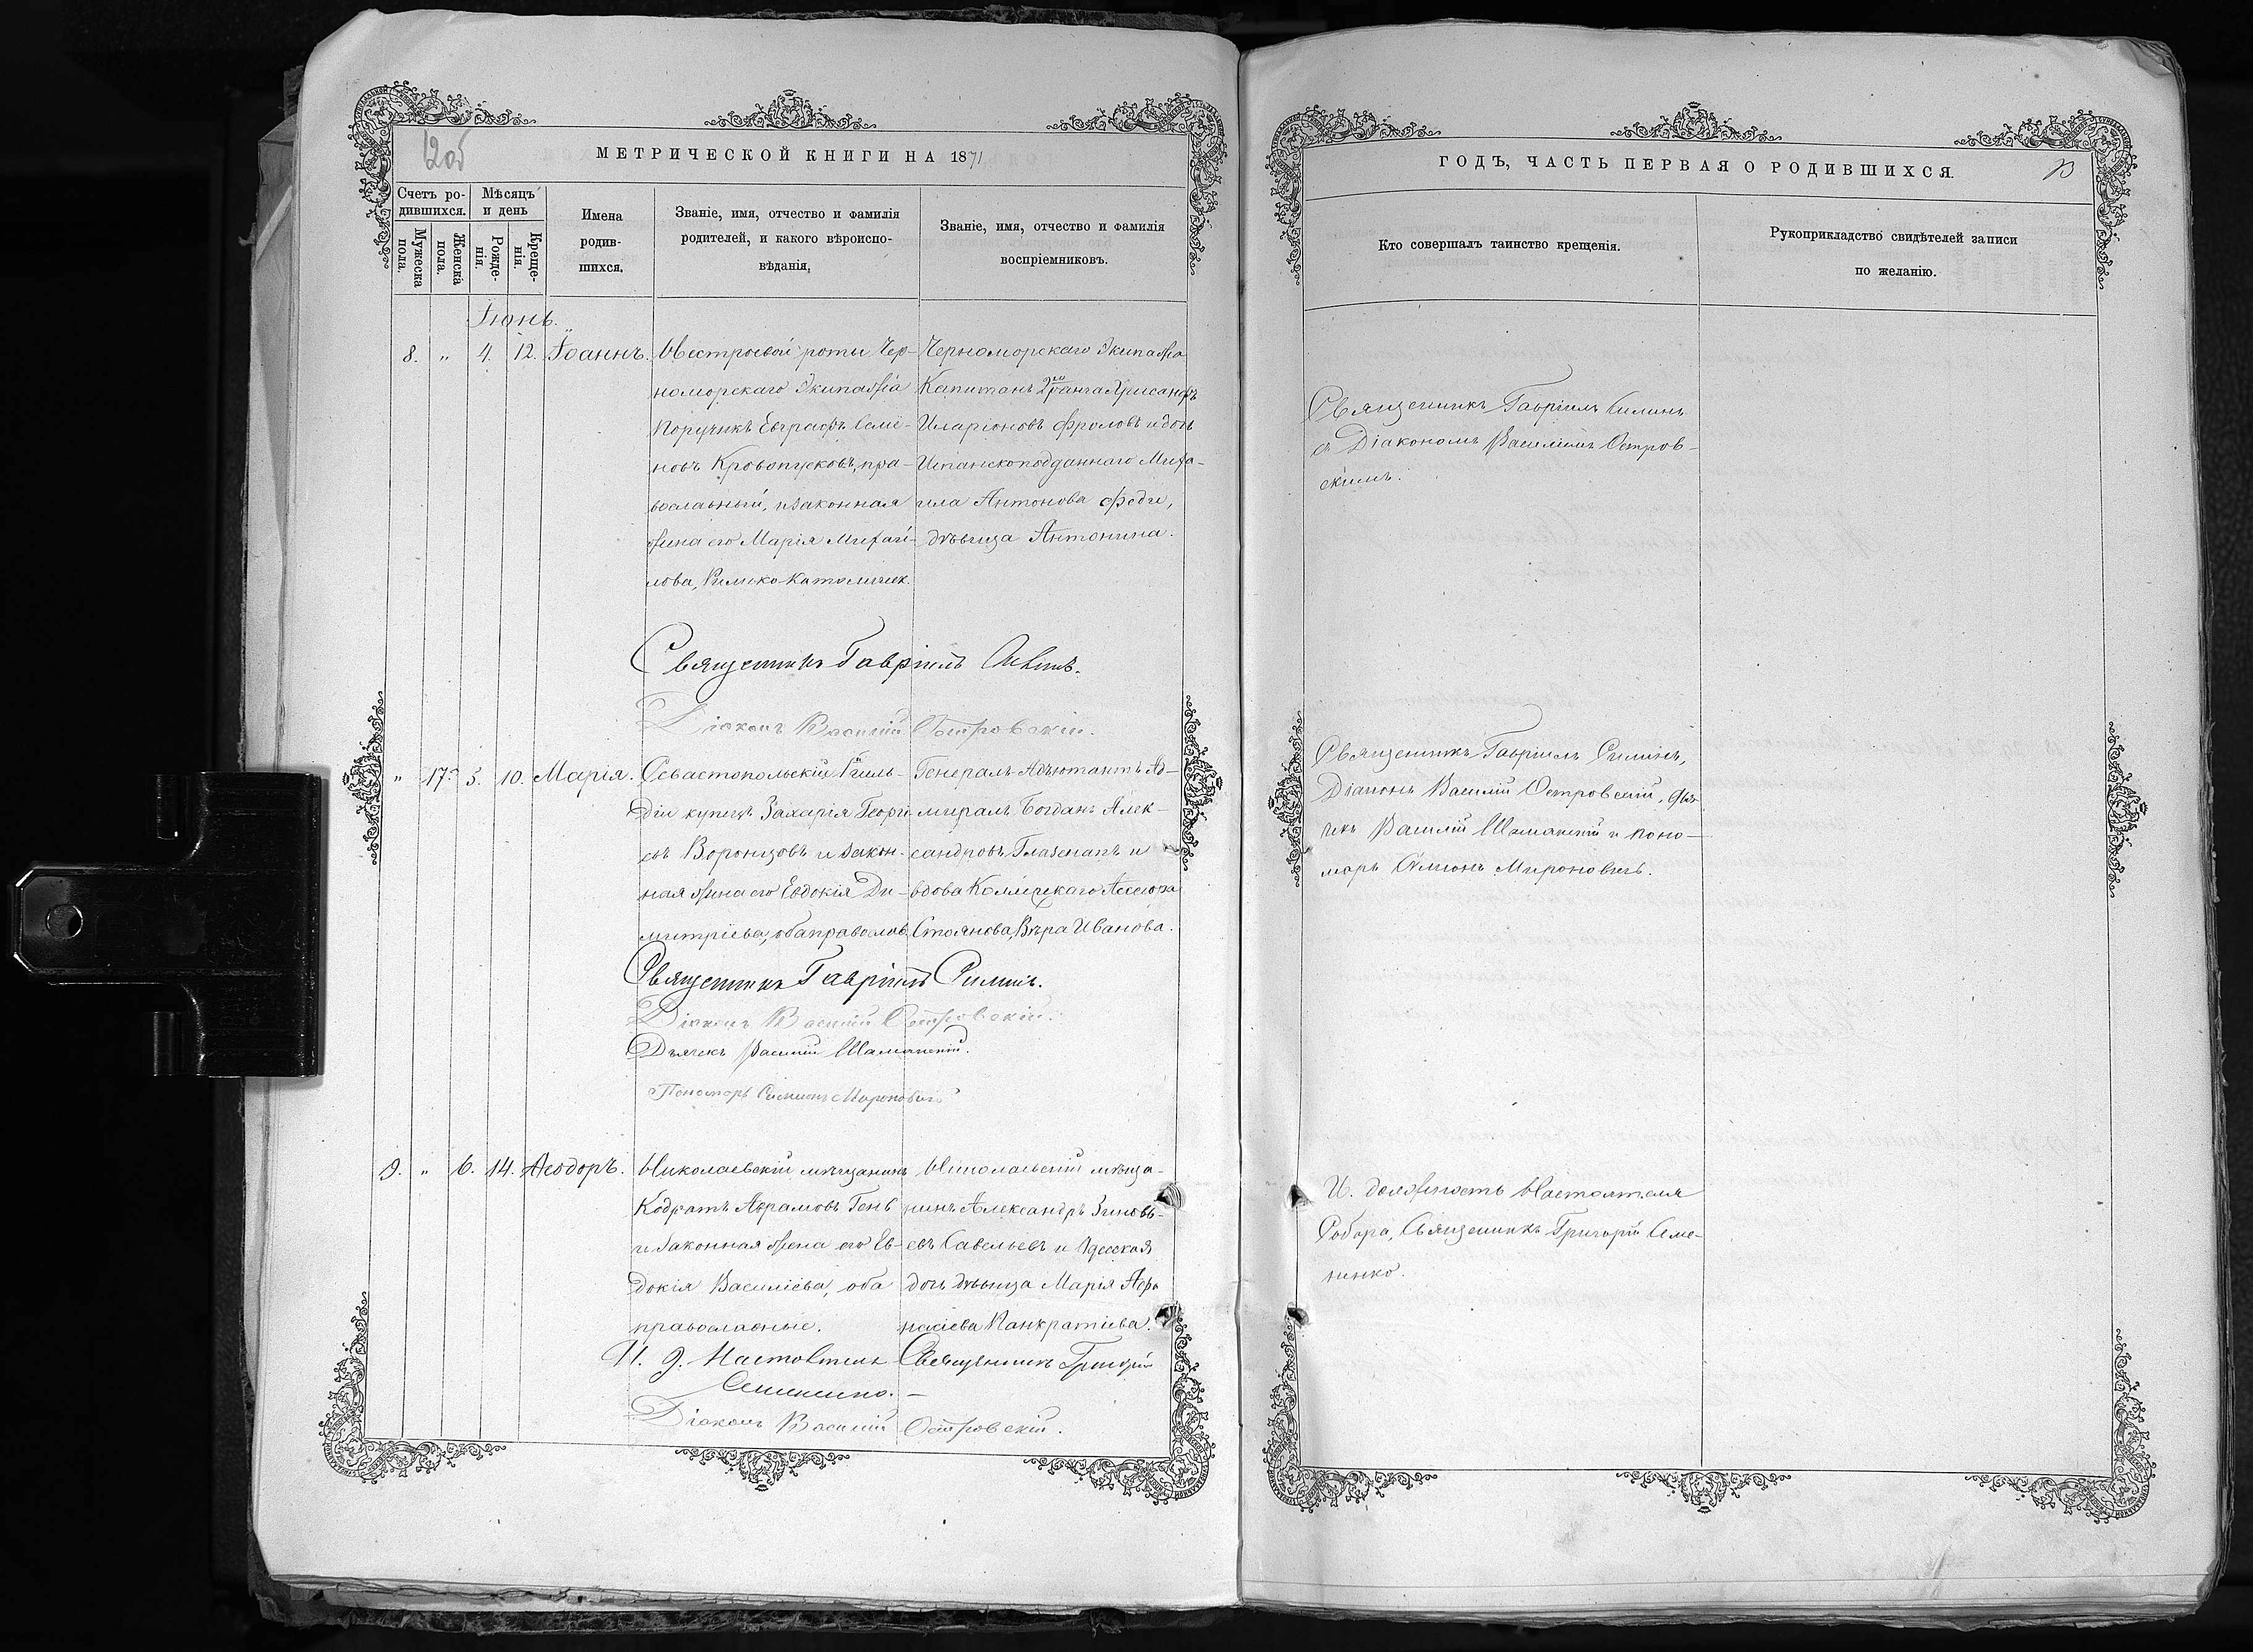 12об
МЕТРИЧЕСКОЙ КНИГИ НА 1871
Счетъ ро-
дившихся.
Мѣсяцъ
и день
Мужеска
пола.
Женска
пола.
Рожде-
нія.
Креще-
нія.
Имена
родив-
шихся.
Званіе, имя, отчество и фамилія
родителей, и какого вѣроиспо-
вѣданія,
Званіе, имя, отчество и фамилія
воспріемниковъ.
Іюнь.
8. " 4. 12. Іоаннъ.
Нестроевой роты Чер-
номорскаго Экипажа
Поручикъ Евграфъ Семе-
новъ Кровопусковъ, пра-
вославный, и законная
жена его Марія Михаи-
лова, Римско-Католичек.
Черноморскаго Экипажа
Капитанъ 2го ранга Хрисанфъ
Иларіоновъ Фроловъ и дочь
Испанскоподданнаго Миха-
ила Антонова Федзи,
дѣвица Антонина.
Священникъ Гавріилъ Силинъ.
Діаконъ Василій Островскій.
" 17. 5. 10. Марія.
Севастопольскій Гиль-
діи купецъ Захарія Георгі-
евъ Воронцовъ и закон-
ная жена его Евдокія Ди-
митріева, оба православ.
Генералъ-Адъютантъ Ад-
миралъ Богданъ Алек-
сандровъ Глазенапъ и
вдова Коллежскаго Ассесора
Стоянова, Вѣра Иванова.
Священникъ Гавріилъ Силинъ.
Діаконъ Василій Островскій.
Дьячекъ Василій Шаманскій.
Пономарь Симеонъ Мироновичъ
9. " 6. 14. Ѳеодоръ.
Николаевскій мѣщанинъ
Кодратъ Аврамовъ Генъ
и законная жена его Ев-
докія Василіева, оба
православные.
Николаевскій мѣща-
нинъ Александръ Зиновь-
евъ Савельевъ и Одесская
дочь дѣвица Марія Аѳа
насіева Панкратіева.
И. д. Настоятеля Священникъ Григорій
Семененко.
Діаконъ Василій Островскій.
ГОДЪ, ЧАСТЬ ПЕРВАЯ О РОДИВШИХСЯ.
13
Кто совершалъ таинство крещенія.
Рукоприкладство свидѣтелей записи
по желанію.
Священникъ Гавріилъ Силинъ
съ Діакономъ Василіемъ Остров-
скимъ.
Священникъ Гавріилъ Силинъ,
Діаконъ Василій Островскій, дья-
чекъ Василій Шаманскій и поно-
марь Симеонъ Мироновичъ.
И. должность Настоятеля
Собора, Священникъ Григорій Семе-
ненко.